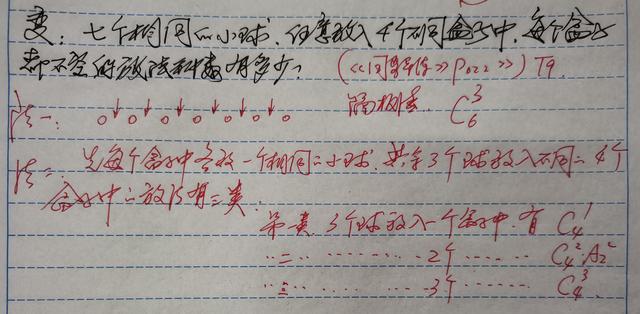 变：七个相同的小球，任意放入4个不同盒子中，每个盒子
都不空的放法种数有多少？ P022 T9.
法一： ○ ○ ○ ○ ○ ○ ○ 隔板法 C₆³
法二：先每个盒子中各放一个相同的小球，其余3个球放入不同的4个
盒子中的放法有三类.
第一类 3个球放入一个盒子中，有 C₄¹
‥二‥ ‥‥‥‥ 2个 ‥‥‥ C₄²·A₂²
‥三‥ ‥‥‥‥ 3个 ‥‥‥ C₄³